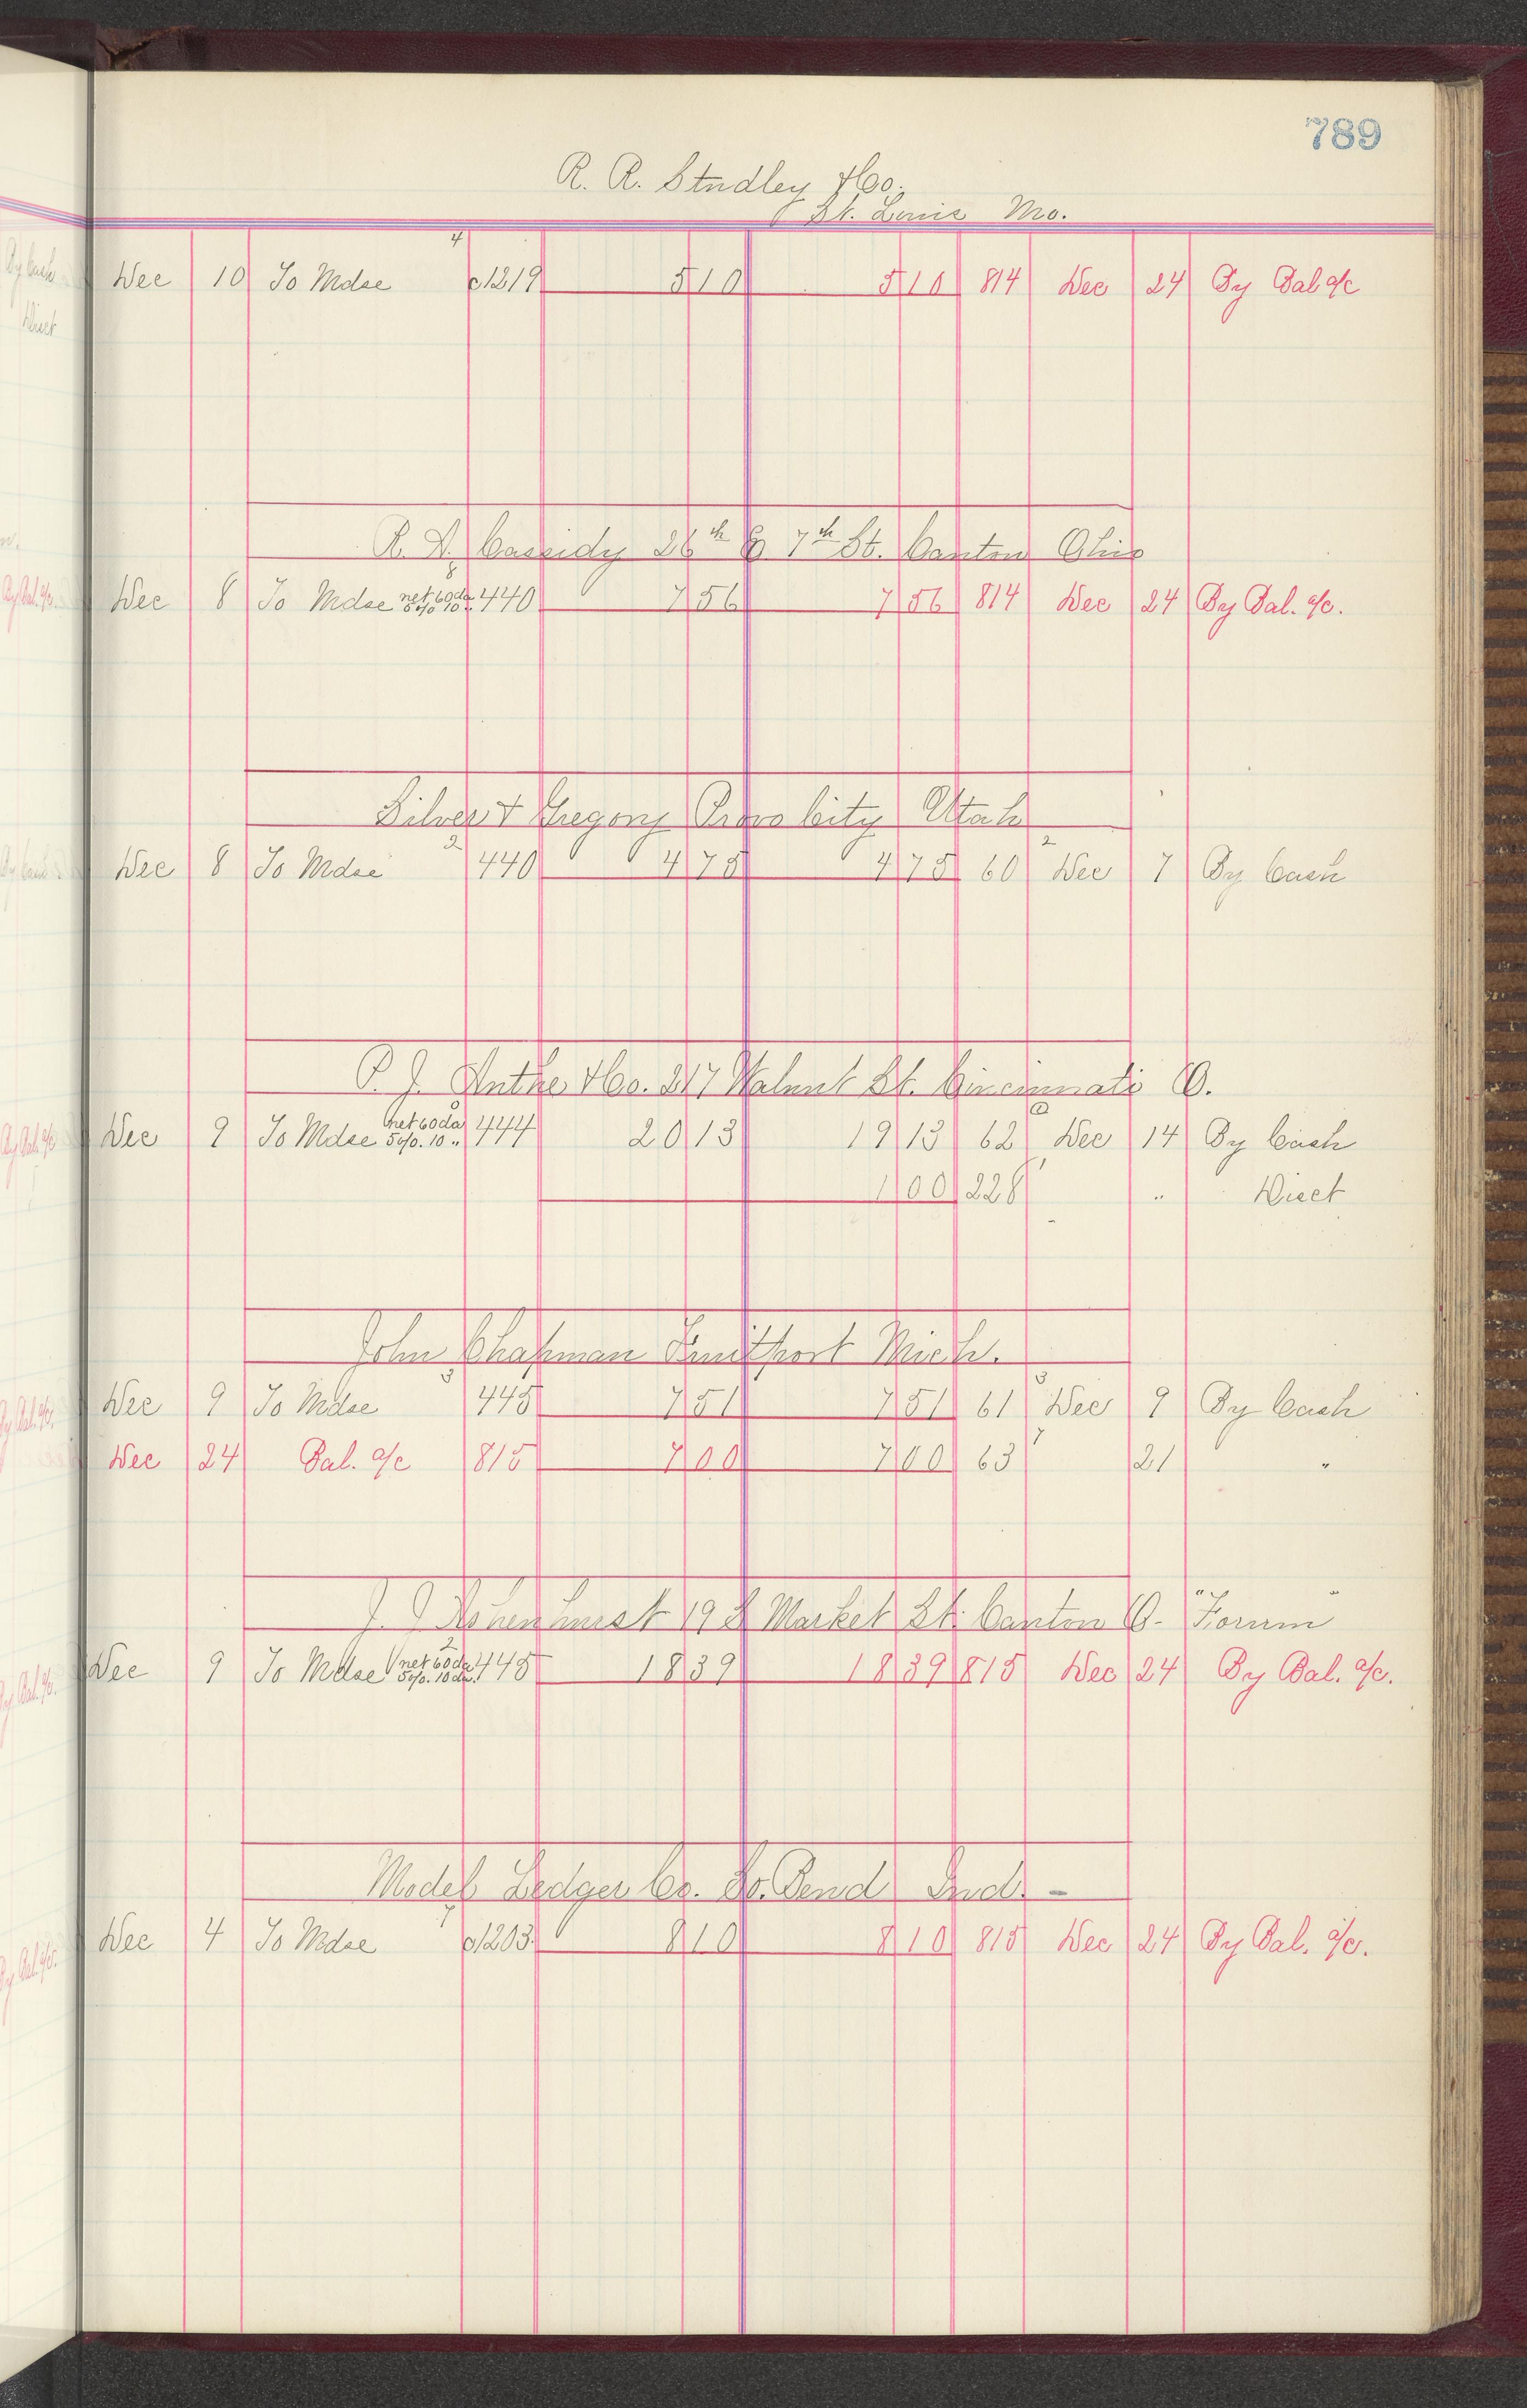 789
R. R. Studley & Co.
St. Louis Mo.
4
Dec 10 To Mdse c1219 5 10 5 10 814 Dec 24 By Bal a/c
R. A. Cassidy 26th & 7th St. Canton Ohio
8
Dec 8 To Mdse net 60 da 5% 10 " 440 7 56 7 56 814 Dec 24 By Bal. a/c.
Silver & Gregory Provo City Utah
2 2
Dec 8 To Mdse 440 4 75 4 75 60 Dec 7 By Cash
P. J. Anthe & Co. 217 Walnut St. Cincinnati O.
Dec 9 To Mdse net 60 da 5%. 10 " 444 20 13 19 13 62 Dec 14 By Cash
1 00 228 " Disct
John Chapman Fruitport Mich.
3 3
Dec 9 To Mdse 445 7 51 7 51 61 Dec 9 By Cash
7
Dec 24 Bal. a/c 815 7 00 7 00 63 21 "
J. J. Ashenhurst 19 S Market St. Canton O. "Forum"
2
Dec 9 To Mdse net 60 da 5%. 10 da. 445 18 39 18 39 815 Dec 24 By Bal. a/c.
Model Ledger Co. So. Bend Ind. -
7
Dec 4 To Mdse c1203 8 10 8 10 815 Dec 24 By Bal. a/c.